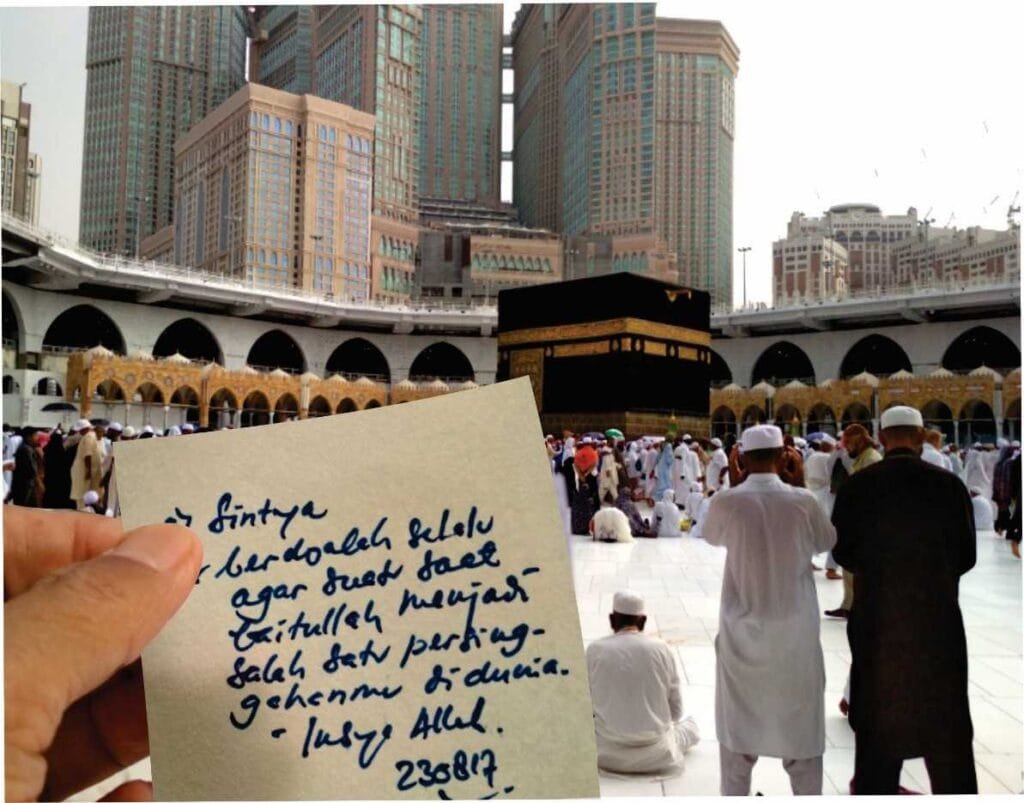 Sintya
berdoalah selalu
agar suatu saat
baitullah menjadi
salah satu persing-
gahanmu di dunia.
- Insya Allah.
230817